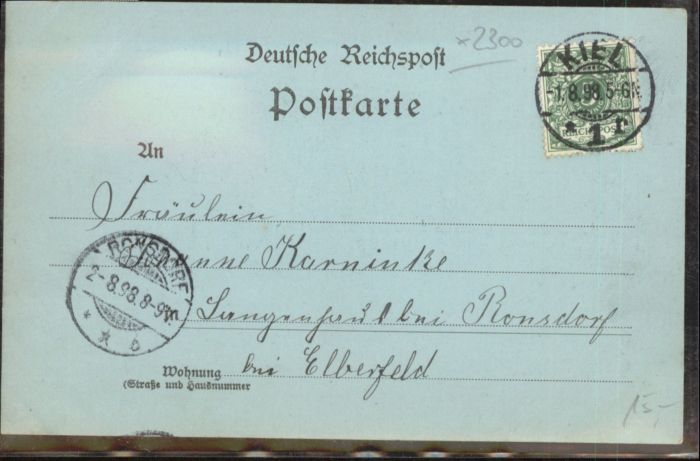 ×2300
Deutsche Reichspost
Postkarte
KIEL
-1.8.98.5-6N.
* 1 r
REICHSPOST
An
Fräulein
Karninke
RONSDORF
2-8.98.8-9V.
* * b
Langenhaus bei Ronsdorf
bei Elberfeld
Wohnung
(Straße und Hausnummer
15,-